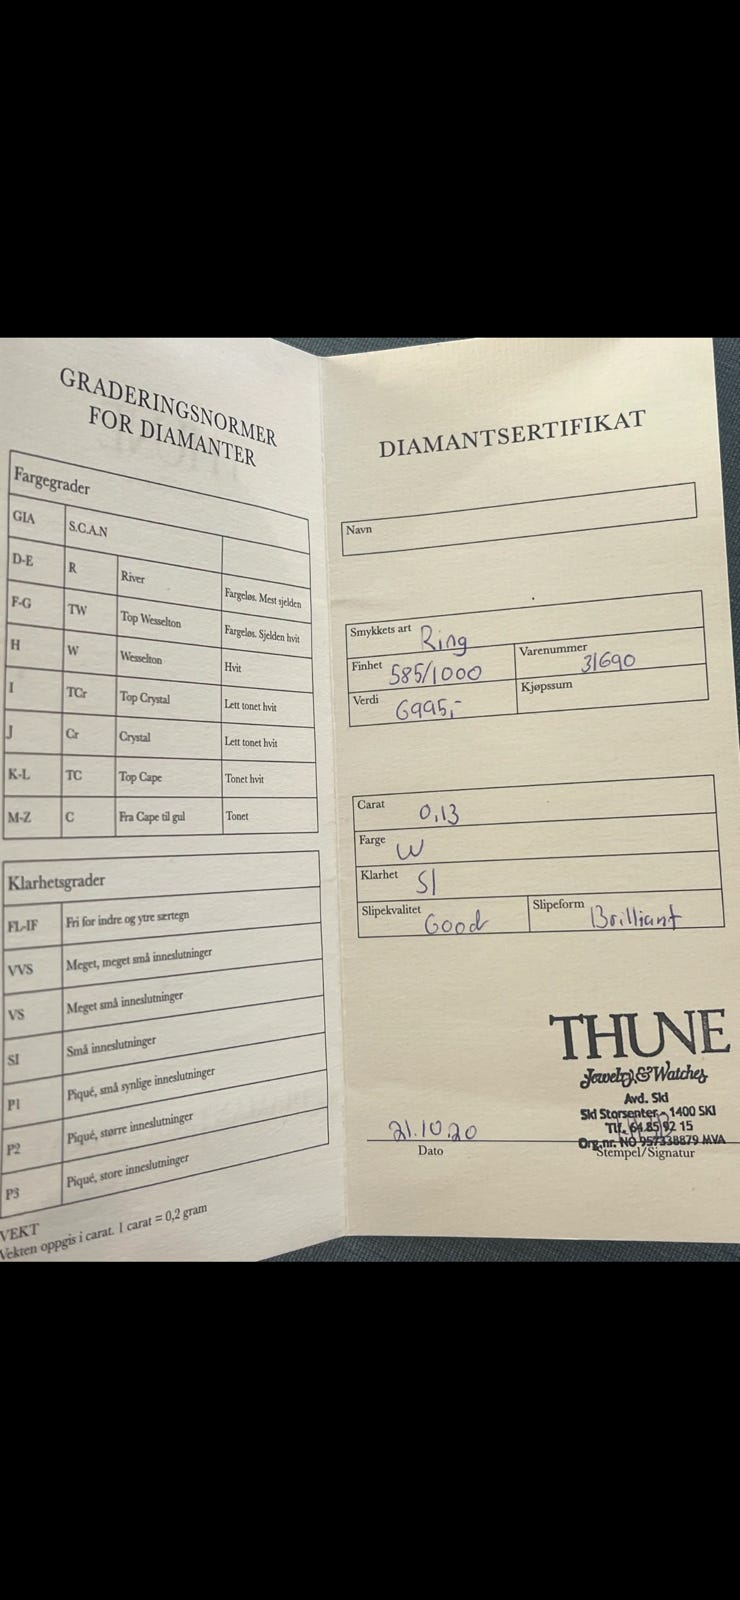 GRADERINGSNORMER
FOR DIAMANTER
Fargegrader
GIA S.C.A.N
D-E R River Fargeløs. Mest sjelden
F-G TW Top Wesselton Fargeløs. Sjelden hvit
H W Wesselton Hvit
I TCr Top Crystal Lett tonet hvit
J Cr Crystal Lett tonet hvit
K-L TC Top Cape Tonet hvit
M-Z C Fra Cape til gul Tonet
Klarhetsgrader
FL-IF Fri for indre og ytre særtegn
VVS Meget, meget små inneslutninger
VS Meget små inneslutninger
SI Små inneslutninger
P1 Piqué, små synlige inneslutninger
P2 Piqué, større inneslutninger
P3 Piqué, store inneslutninger
VEKT
Vekten oppgis i carat. 1 carat = 0,2 gram
DIAMANTSERTIFIKAT
Navn
Smykkets art Ring
Finhet 585/1000 Varenummer 31690
Verdi 6995,- Kjøpssum
Carat 0,13
Farge W
Klarhet SI
Slipekvalitet Good Slipeform Brilliant
THUNE
Jewelry & Watches
Avd. Ski
Ski Storsenter - 1400 SKI
Tlf. 64 85 92 15
Org.nr. NO 957338879 MVA
21.10.20
Dato Stempel/Signatur